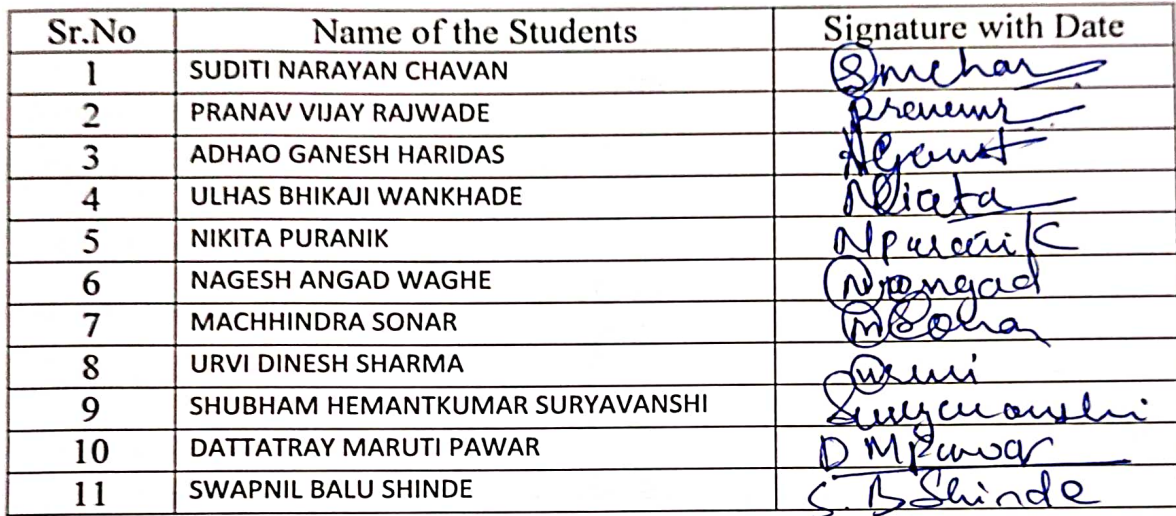 Sr.No Name of the Students Signature with Date
1 SUDITI NARAYAN CHAVAN
2 PRANAV VIJAY RAJWADE
3 ADHAO GANESH HARIDAS
4 ULHAS BHIKAJI WANKHADE
5 NIKITA PURANIK NPuranik
6 NAGESH ANGAD WAGHE
7 MACHHINDRA SONAR
8 URVI DINESH SHARMA
9 SHUBHAM HEMANTKUMAR SURYAVANSHI Suryavanshi
10 DATTATRAY MARUTI PAWAR D M Pawar
11 SWAPNIL BALU SHINDE S. B Shinde